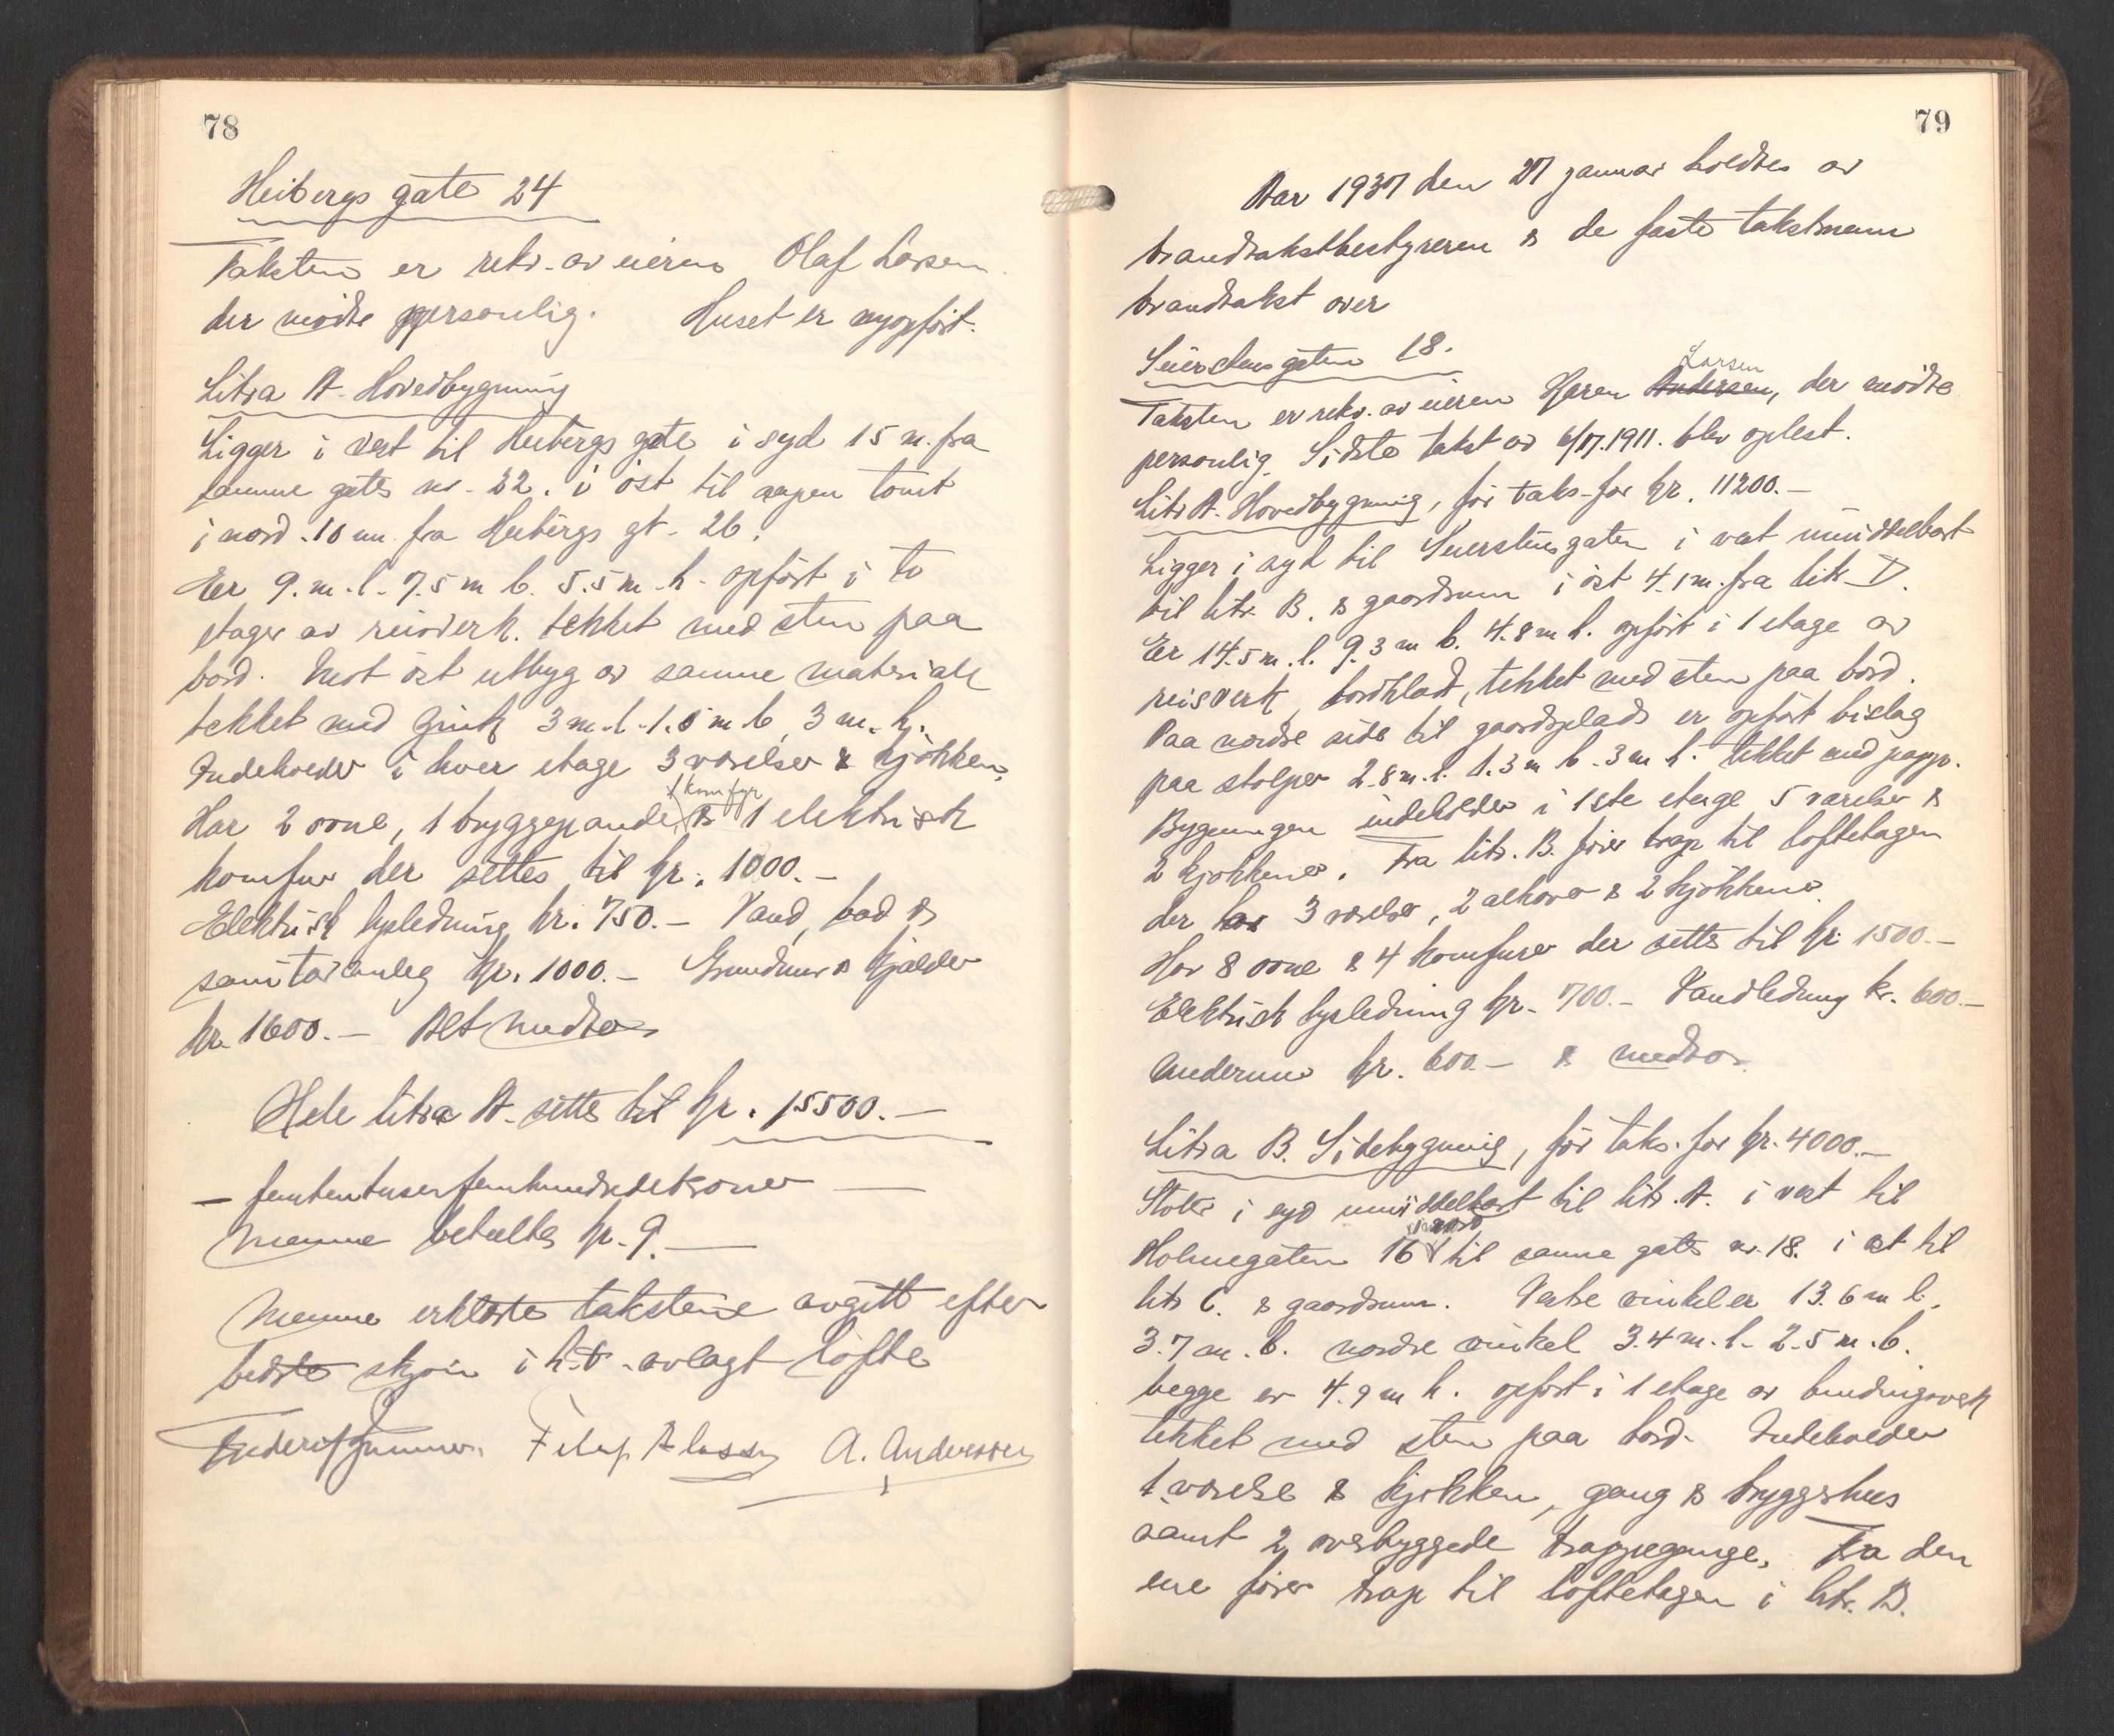 78
Heibergs gate 24
Taksten er rekv. av eieren Olaf Larsen
der møtte personlig. Huset er nyopført.
Litra A. Hovedbygning
Ligger i vest til Heibergs gate i syd 15 m. fra
samme gates nr. 22. i øst til aapen tomt
i nord 10 m fra Heibergs gt. 26.
Er 9. m. l. 7.5 m b. 5.5 m. h. opført i to
etager av reisverk. tekket med sten paa
bord. Mot øst utbyg av samme materiale
tekket med zink 3 m. l. 1.5 m b. 3 m. h.
Indeholder i hver etage 3 værelser & kjøkken,
1 komfyr
Har 2 ovne, 1 bryggepande, & 1 elektrisk
komfur der settes til kr. 1000.-
Elektrisk lysledning kr. 750.- Vand, bad &
sanitæranleg kr. 1000.- Grundmur & kjælder
kr. 1600.- Alt medtas
Hele litra A. settes til kr. 15500.-
- femtentusenfemhundredekroner -
Mennene betaltes kr. 9.-
Mennene erklærte takstene avgitt efter
bedste skjøn i h. t. avlagt løfte
A. Andersen
79
Aar 1937 den 27 januar holdtes av
brandtakstbestyreren & de faste takstmenn
brandtakst over
Seierstensgaten 18.
Larsen
Taksten er rekv. av eieren Herm Andersen, der møtte
personlig. Sidste takst av 6/7.1911. blev oplest.
Litr A. Hovedbygning, før taks. for kr. 11200.-
Ligger i syd til Seierstensgaten i vest umiddelbart
til litr. B. & gaardsrum i øst 4.1 m. fra litr. D.
Er 14.5 m. l. 9.3 m b. 4.8 m h. opført i 1 etage av
reisverk, bordklædt, tekket med sten paa bord.
Paa nordre side til gaardsplads er opført bislag
paa stolper 2.8 m. l. 1.3 m b. 3 m h. tekket med papp.
Bygningen indeholder i 1ste etage 5 værelser &
2 kjøkkener. Fra litr. B. fører trap til loftetagen
der har 3 værelser, 2 alkover & 2 kjøkkener.
Har 8 ovne & 4 komfurer der settes til kr. 1500.-
Elektrisk lysledning kr. 700.- Vandledning kr. 600.-
Underrum kr. 600.- & medtas.
Litra B. Sidebygning, før taks. for kr. 4000.-
Støter i syd umiddelbart til litr. A. i vest til
i nord
Holmegaten 16 til samme gates nr. 18. i øst til
litr C. & gaardsrum. Vestre vinkel er 13.6 m l.
3.7 m. b. nordre vinkel 3.4 m. l. 2.5 m. b.
begge er 4.9 m h. opført i 1 etage av bindingsverk
tekket med sten paa bord. Indeholder
1 værelse & kjøkken, gang & bryggehus
samt 2 overbyggede trappegange. Fra den
ene fører trap til loftetagen i litr. B.